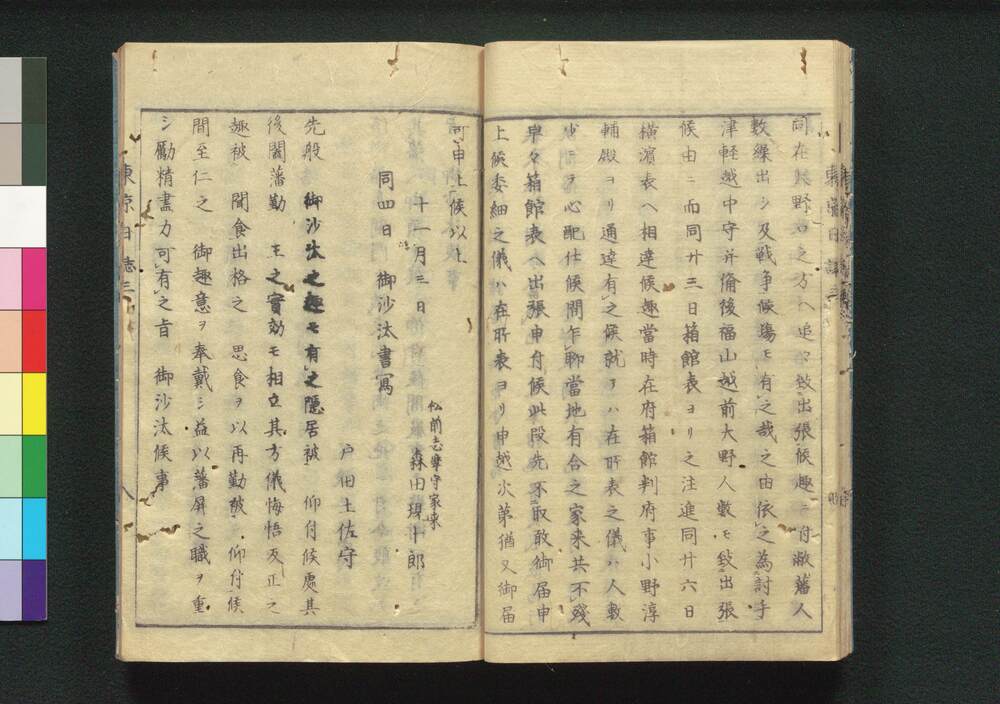 同在與野大之方へ追々致出張候趣ニ付敝藩人
数繰出シ及戦争候場モ有之哉之由依之為討手
津軽越中守并備後福山越前大野人数モ致出張
候由ニ而同廿三日箱館表ヨリ之注進同廿六日
横濱表へ相達候趣當時在府箱館判府事小野淳
輔殿ヨリ通達有之候就テハ在所表之儀ハ人数
少ニテ心配仕候間乍聊當地有合之家来共不残
早々箱館表へ出張申付候此段先不取敢御届申
上候委細之儀ハ在所表ヨリ申越次第猶又御届
可申上候以上
十一月三日
松前志摩守家来
森田瑛十郎
同四日 御沙汰書寫
戸田土佐守
先般 御沙汰之趣モ有之隠居被 仰付候處其
後闔藩勤 王之實効モ相立其方儀悔悟反正之
趣被 聞食出格之 思食ヲ以再勤被 仰付候
間至仁之 御趣意ヲ奉戴シ益以藩屏之職ヲ重
シ勵精盡力可有之旨 御沙汰候事
東京日誌三
八